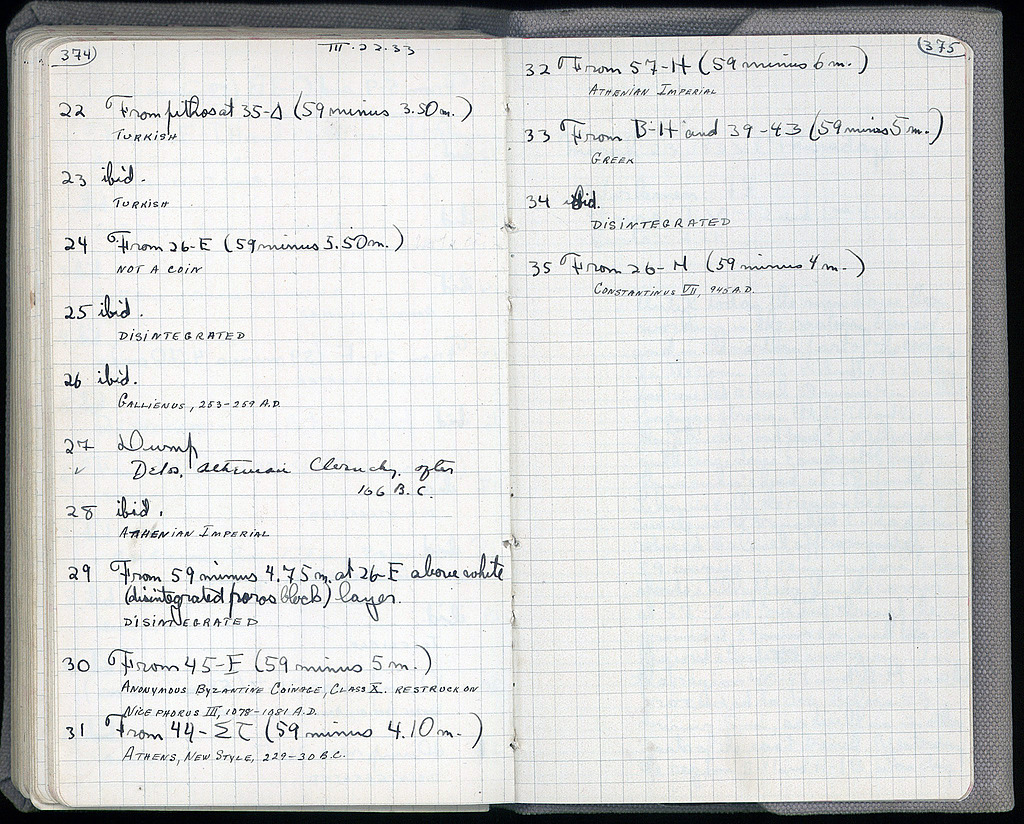 374
III·22·33
22 From pithos at 35-Δ (59 minus 3.50 m.)
TURKISH
23 ibid.
TURKISH
24 From 26-E (59 minus 5.50 m.)
NOT A COIN
25 ibid.
DISINTEGRATED
26 ibid.
GALLIENUS, 253-259 A.D.
27 Dump
✓ Delos, Athenian Cleruchy, after
166 B.C.
28 ibid.
ATHENIAN IMPERIAL
29 From 59 minus 4.75 m. at 26-E above white
(disintegrated poros block) layer.
DISINTEGRATED
30 From 45-E (59 minus 5 m.)
ANONYMOUS BYZANTINE COINAGE, CLASS X. RESTRUCK ON
NICEPHORUS III, 1078-1081 A.D.
31 From 44-ΣΤ (59 minus 4.10 m.)
ATHENS, NEW STYLE, 229-30 B.C.
375
32 From 57-H (59 minus 6 m.)
ATHENIAN IMPERIAL
33 From B-H and 39-43 (59 minus 5 m.)
GREEK
34 ibid.
DISINTEGRATED
35 From 26-H (59 minus 4 m.)
CONSTANTINUS VII, 945 A.D.